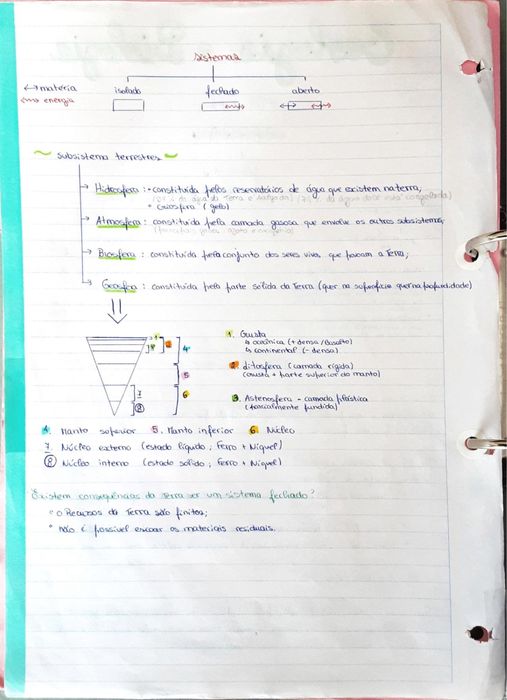 Sistemas
↔ matéria
↔ energia
isolado
fechado
aberto
~ Subsistema terrestres ~
→ Hidrosfera : • constituída pelos reservatórios de água que existem na terra;
• Criosfera (gelo)
→ Atmosfera : constituída pela camada gasosa que envolve os outros subsistemas;
→ Biosfera : constituída pelo conjunto dos seres vivos, que povoam a Terra;
→ Geosfera : constituída pela parte sólida da Terra (quer na superfície quer na profundidade)
1
2
3
4
5
6
7
8
1. Crusta
↳ oceânica (+ densa/Basalto)
↳ continental (- densa)
2. Litosfera (camada rígida)
(crusta + parte superior do manto)
3. Astenosfera - camada plástica
(parcialmente fundida)
4. Manto superior 5. Manto inferior 6. Núcleo
7 Núcleo externo (estado líquido ; Ferro + Níquel)
8 Núcleo interno (estado sólido ; Ferro + Níquel)
Existem consequências da Terra ser um sistema fechado?
• o Recursos da Terra são finitos;
• não é possível escoar os materiais residuais.